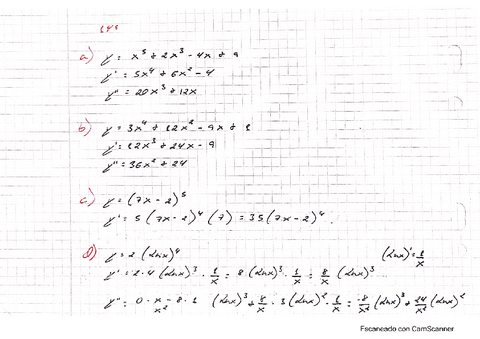 a) y = x⁵ + 2x³ - 4x + 9
y' = 5x⁴ + 6x² - 4
y'' = 20x³ + 12x
b) y = 3x⁴ + 12x² - 9x + 8
y' = 12x³ + 24x - 9
y'' = 36x² + 24
c) y = (7x - 2)⁵
y' = 5 (7x - 2)⁴ (7) = 35 (7x - 2)⁴.
d) y = 2 (lnx)⁴ (lnx)' = 1/x
y' = 2 · 4 (lnx)³ · 1/x = 8 (lnx)³ · 1/x = 8/x (lnx)³
y'' = 0 · x - 8 · 1 / x² (lnx)³ + 8/x · 3 (lnx)² · 1/x = -8/x² (lnx)³ + 24/x² (lnx)²
Escaneado con CamScanner